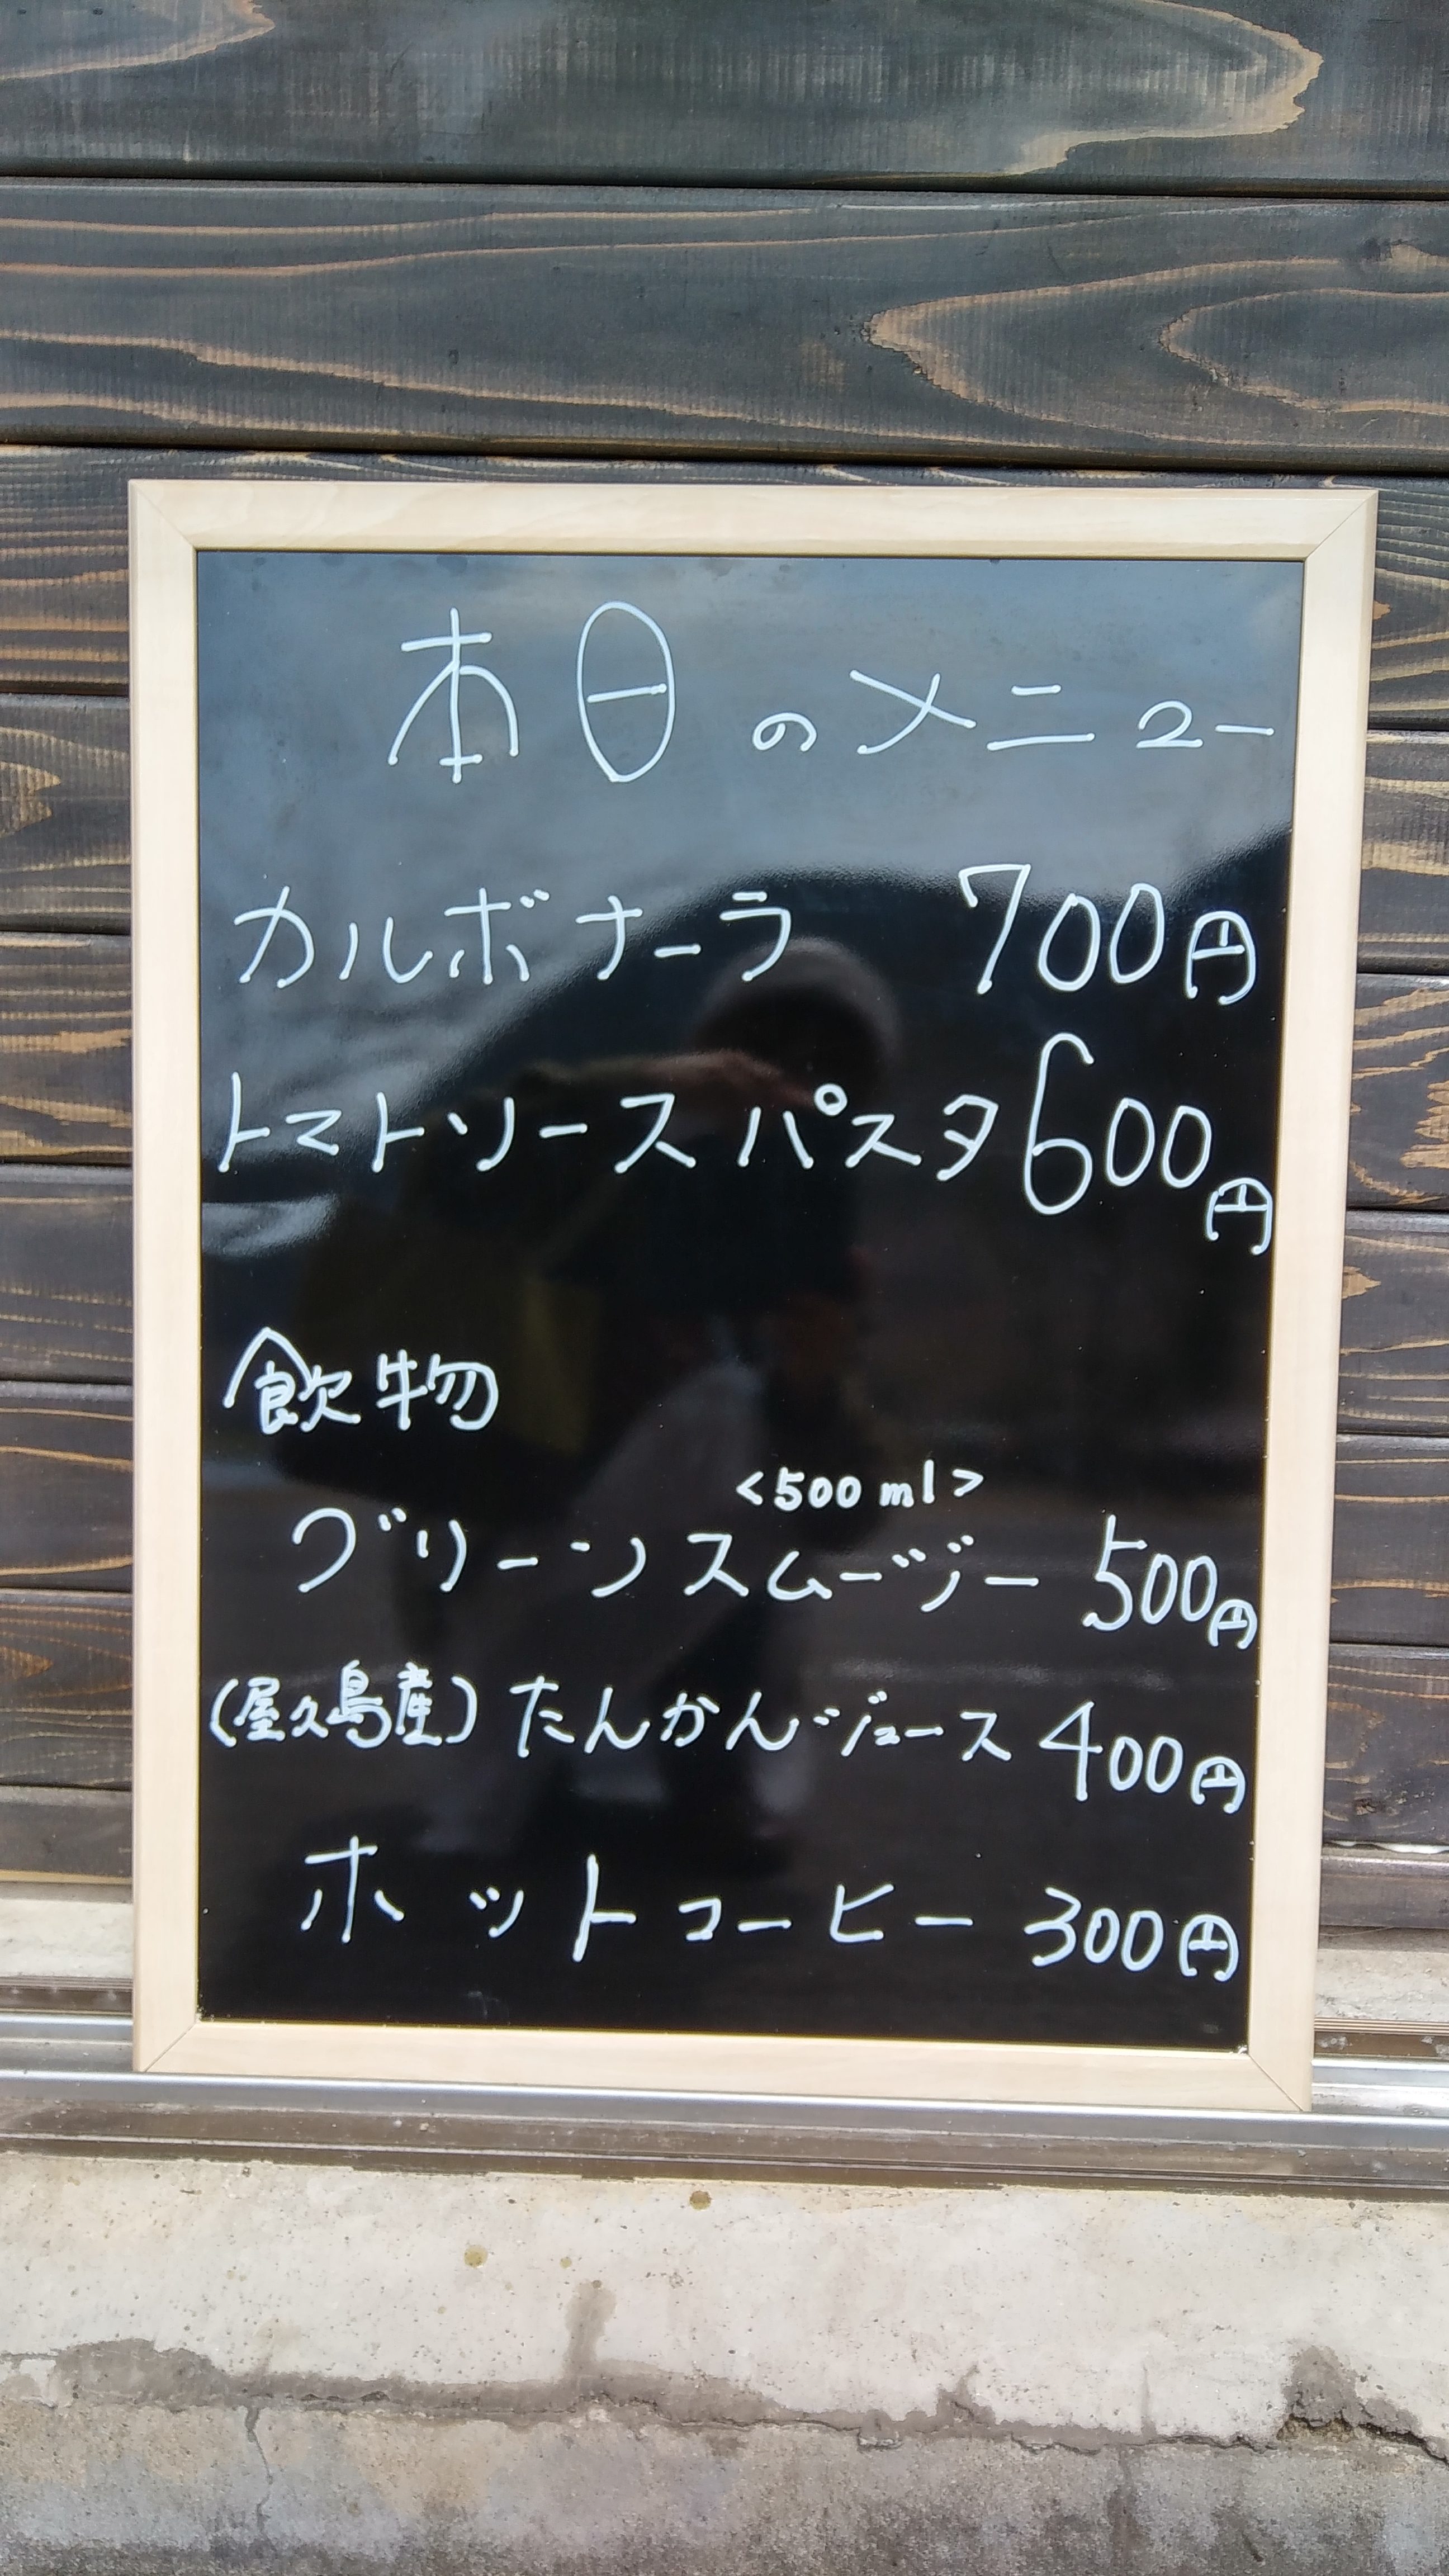 本日のメニュー
カルボナーラ 700円
トマトソースパスタ 600円
飲物
<500ml>
グリーンスムージー 500円
(屋久島産)たんかんジュース 400円
ホットコーヒー 300円